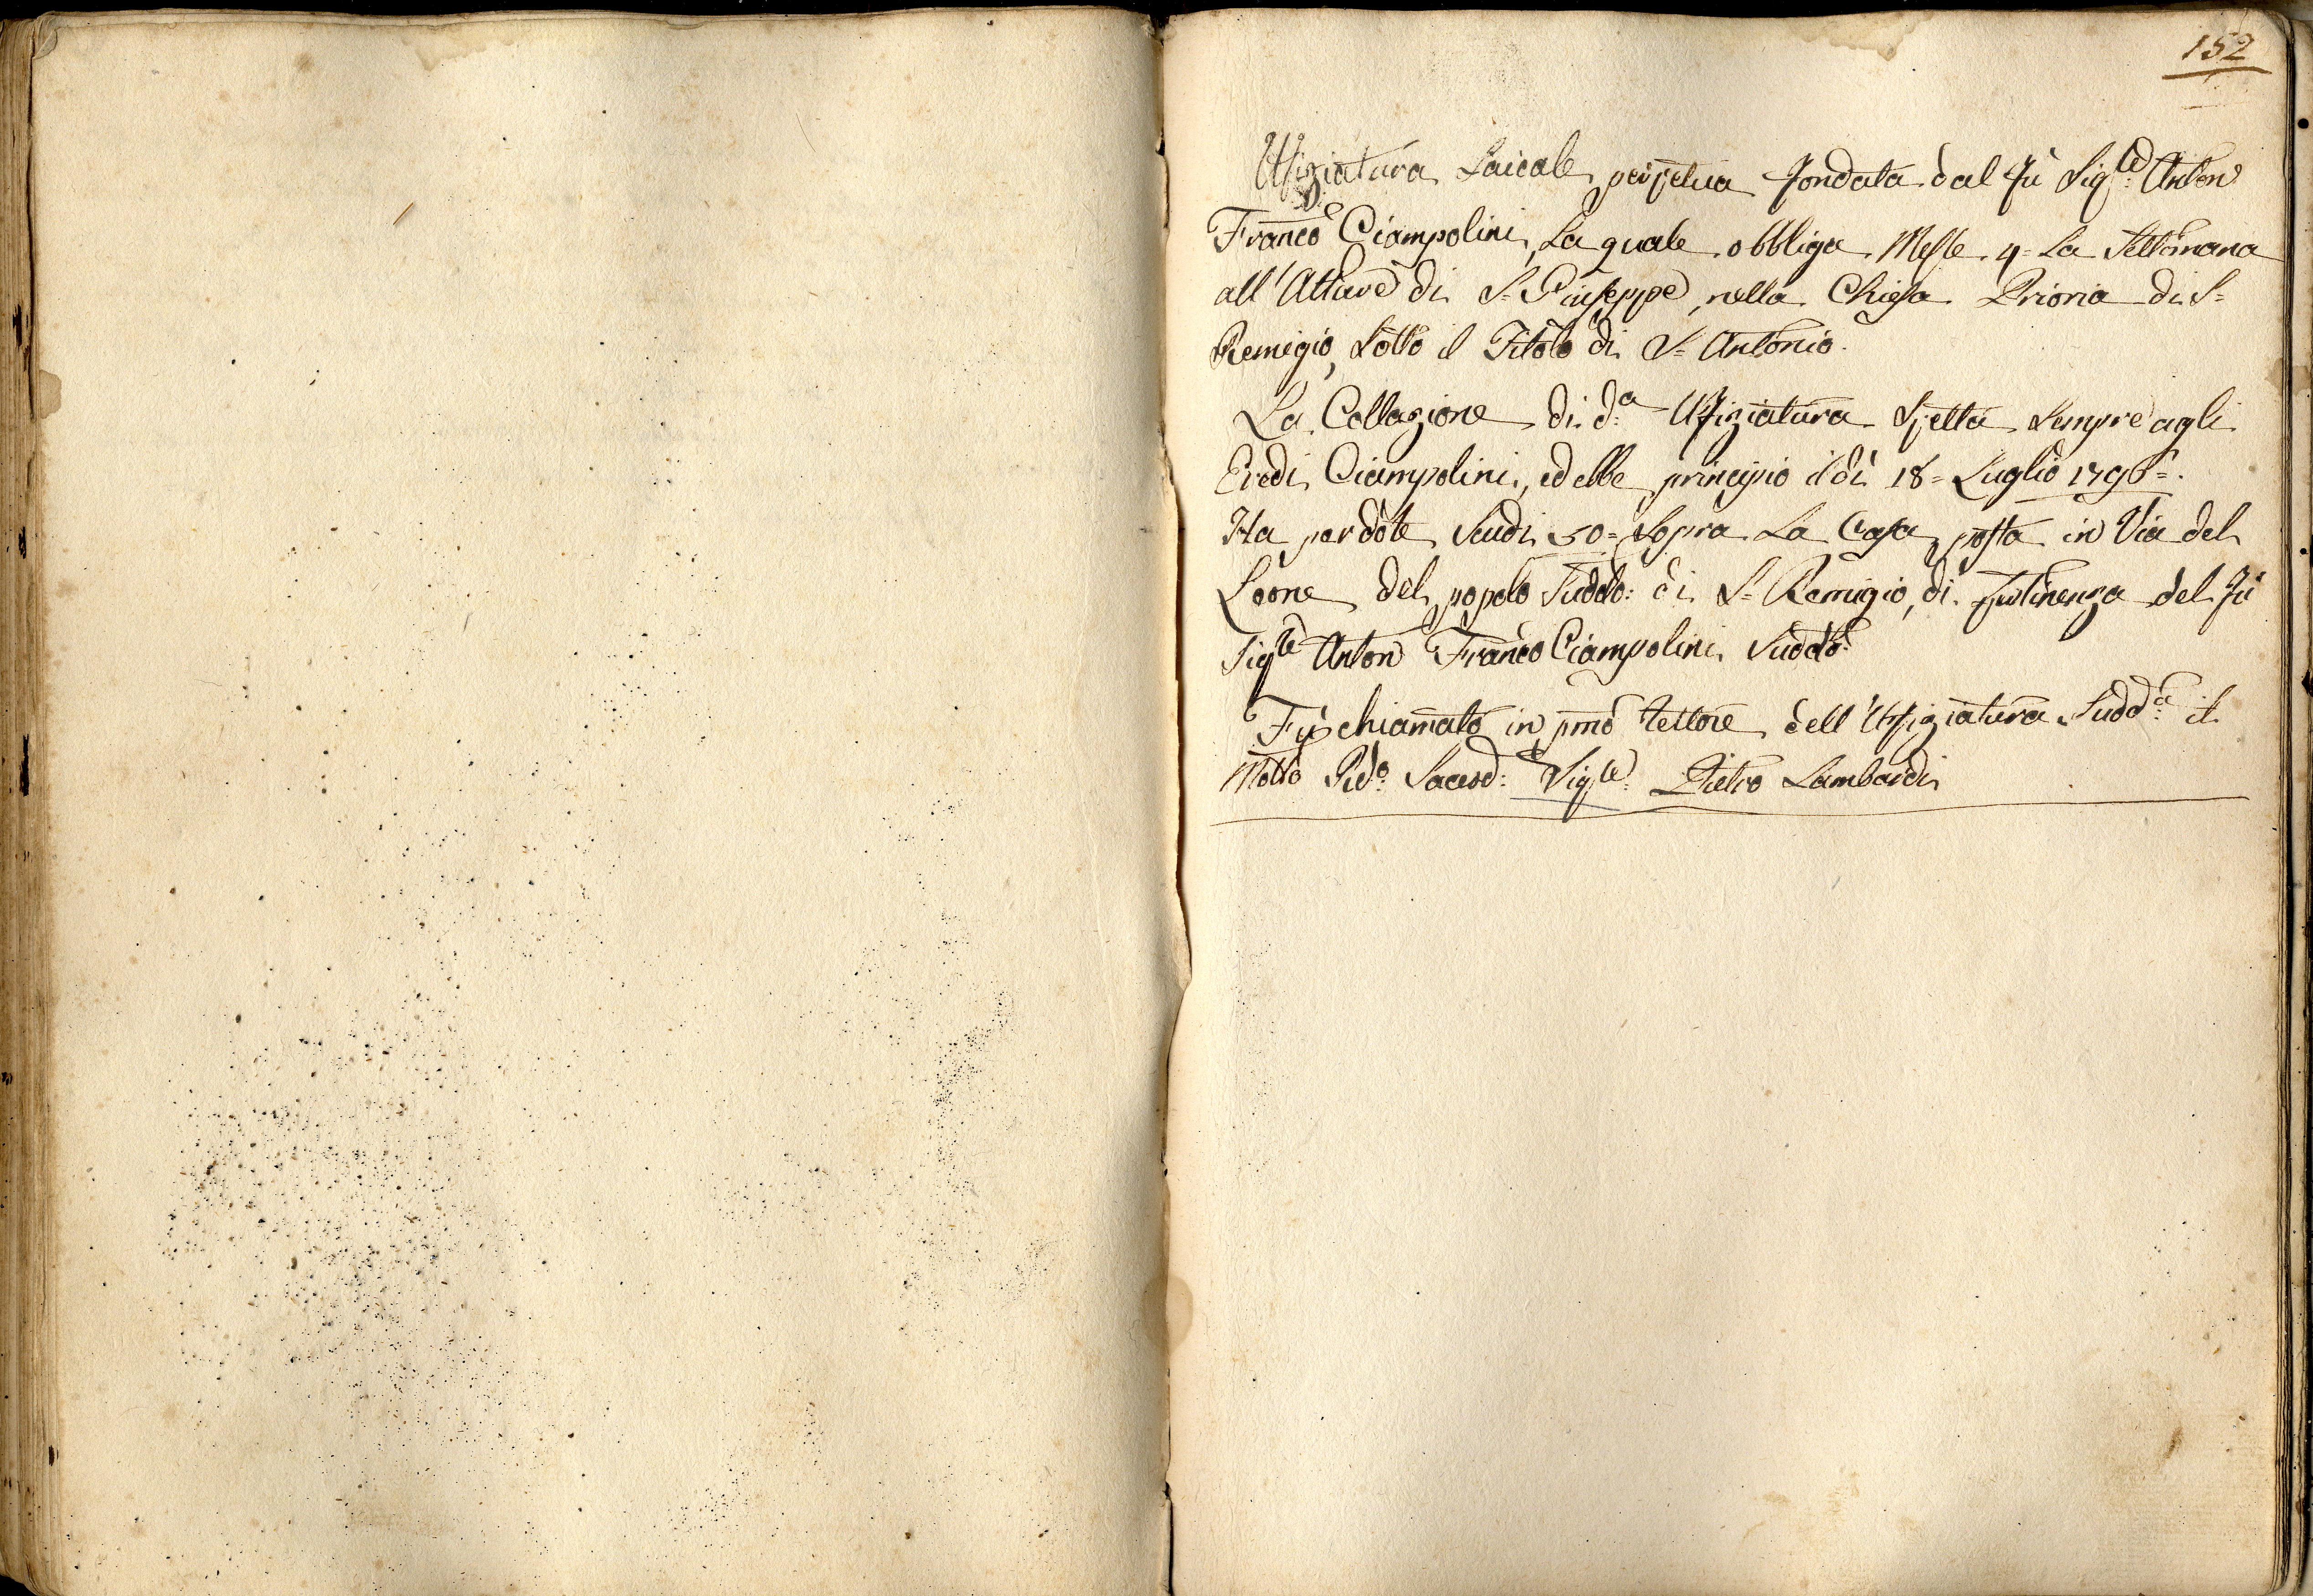 152
Ufiziatura Laicale perpetua fondata dal fù Sig.le Anton
Franc̄o Ciampolini, La quale obbliga Messe 4= La Settimana
all'Altare di S= Giuseppe, nella Chiesa Prioria di S=
Remigio, Sotto il Titolo di S= Antonio.
La Collazione di d:a Ufiziatura Spetta Sempre agli
Eredi Ciampolini, ed ebbe principio il dì 18= Luglio
Ha per dote Scudi 50= Sopra La Casa posta in Via del
Leone del popolo Suddo: di S= Remigio, di pertinenza del fù
Sig.le Anton Franc̄o Ciampolini Suddo:
Fù chiamato in pm̄o Rettore dell'Ufiziatura Sudd:a il
Molto Rdo: Sacerd: Sig.le Pietro Lambardi